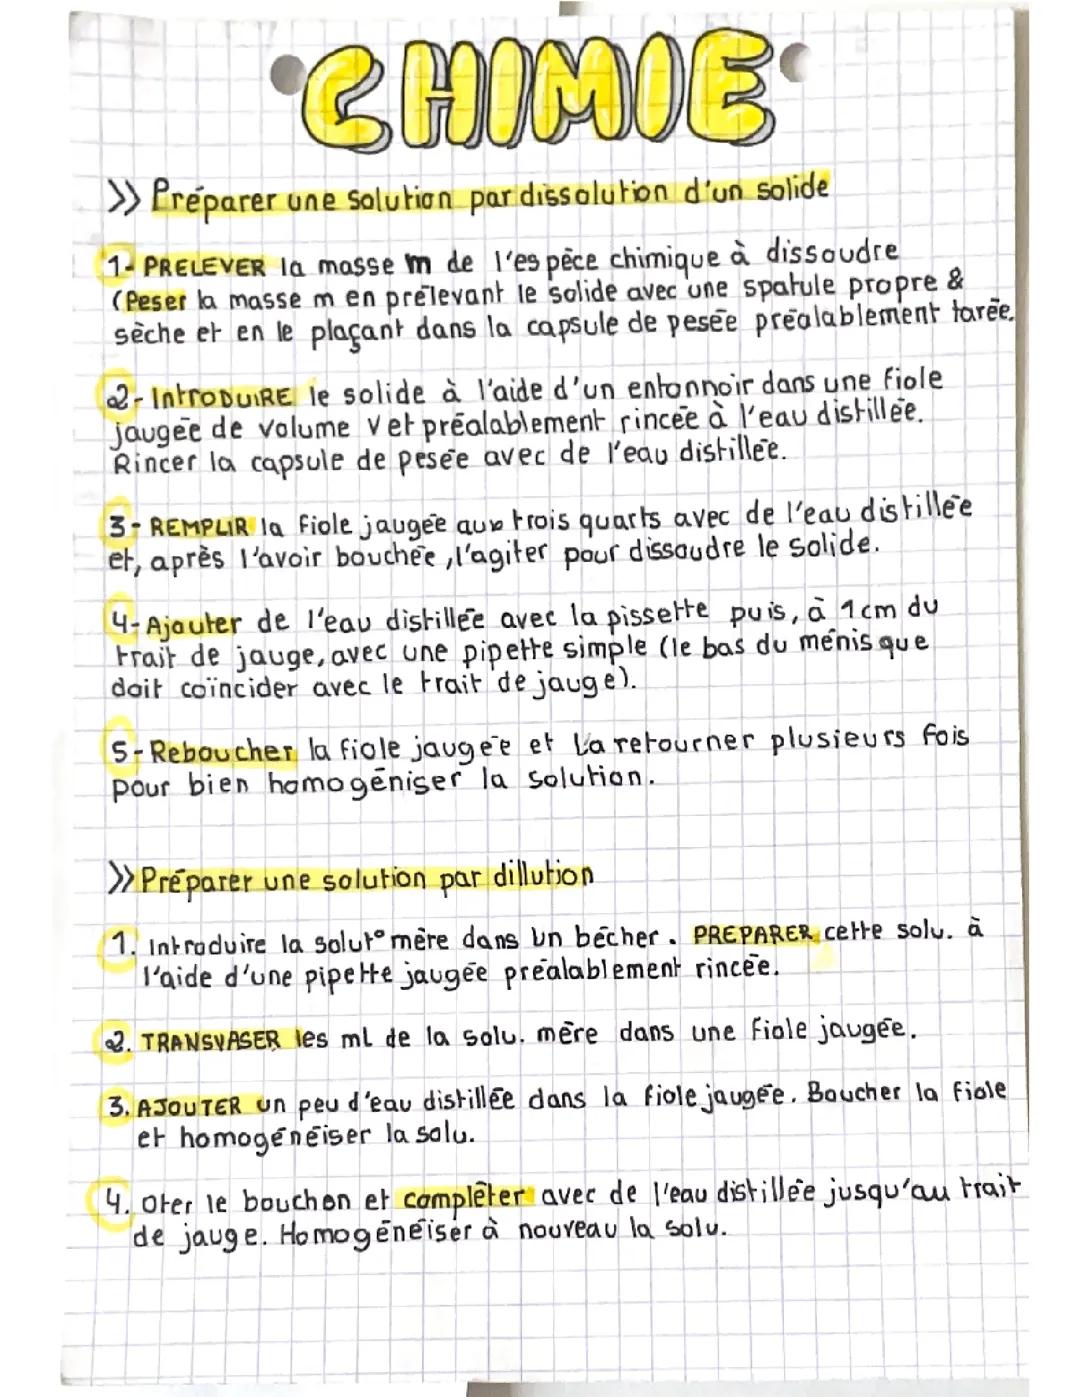 CHIMIE
>> Préparer une solution par dissolution d'un solide
1- PRELEVER la masse m de l'espèce chimique à dissoudre
(Peser la masse m en prélevant le solide avec une spatule propre &
sèche et en le plaçant dans la capsule de pesée préalablement tarée.
2- INTRODUIRE le solide à l'aide d'un entonnoir dans une fiole
jaugée de volume V et préalablement rincée à l'eau distillée.
Rincer la capsule de pesée avec de l'eau distillée.
3- REMPLIR la fiole jaugée aux trois quarts avec de l'eau distillée
et, après l'avoir bouchée, l'agiter pour dissoudre le solide.
4- Ajouter de l'eau distillée avec la pissette puis, à 1cm du
trait de jauge, avec une pipette simple (le bas du ménisque
doit coïncider avec le trait de jauge).
5- Reboucher la fiole jaugée et la retourner plusieurs fois
pour bien homogéniser la solution.
>> Préparer une solution par dillution
1. Introduire la solut° mère dans un bécher. PREPARER cette solu. à
l'aide d'une pipette jaugée préalablement rincée.
2. TRANSVASER les mL de la solu. mère dans une fiole jaugée.
3. AJOUTER un peu d'eau distillée dans la fiole jaugée. Boucher la fiole
et homogénéiser la solu.
4. Oter le bouchon et compléter avec de l'eau distillée jusqu'au trait
de jauge. Homogénéiser à nouveau la solu.